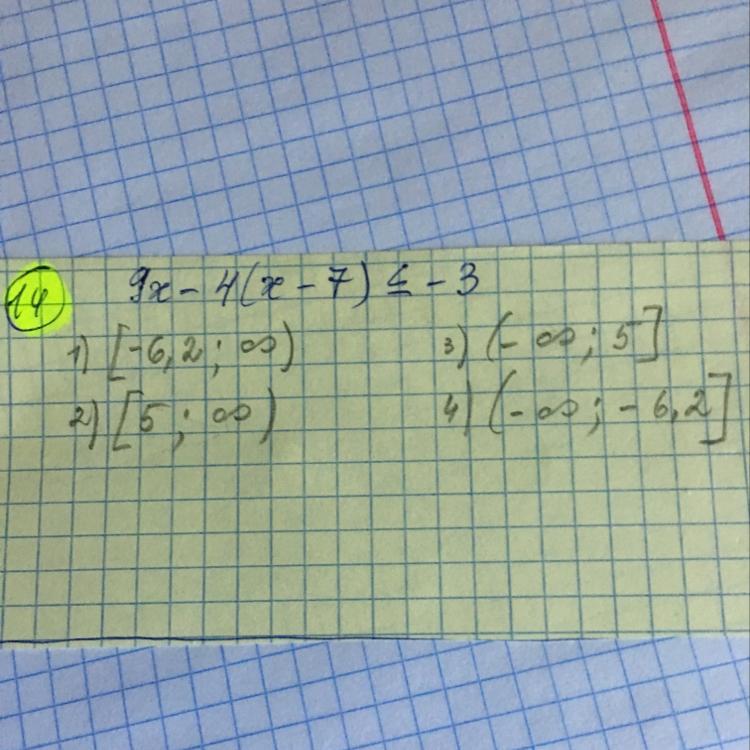 14
9x - 4(x - 7) ≤ - 3
1) [-6,2 ; ∞)
3) (- ∞ ; 5]
2) [5 ; ∞)
4) (- ∞ ; - 6,2]